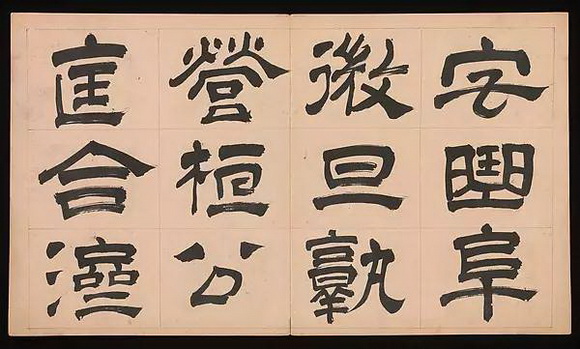 宅曲阜
微旦孰
營桓公
匡合濟